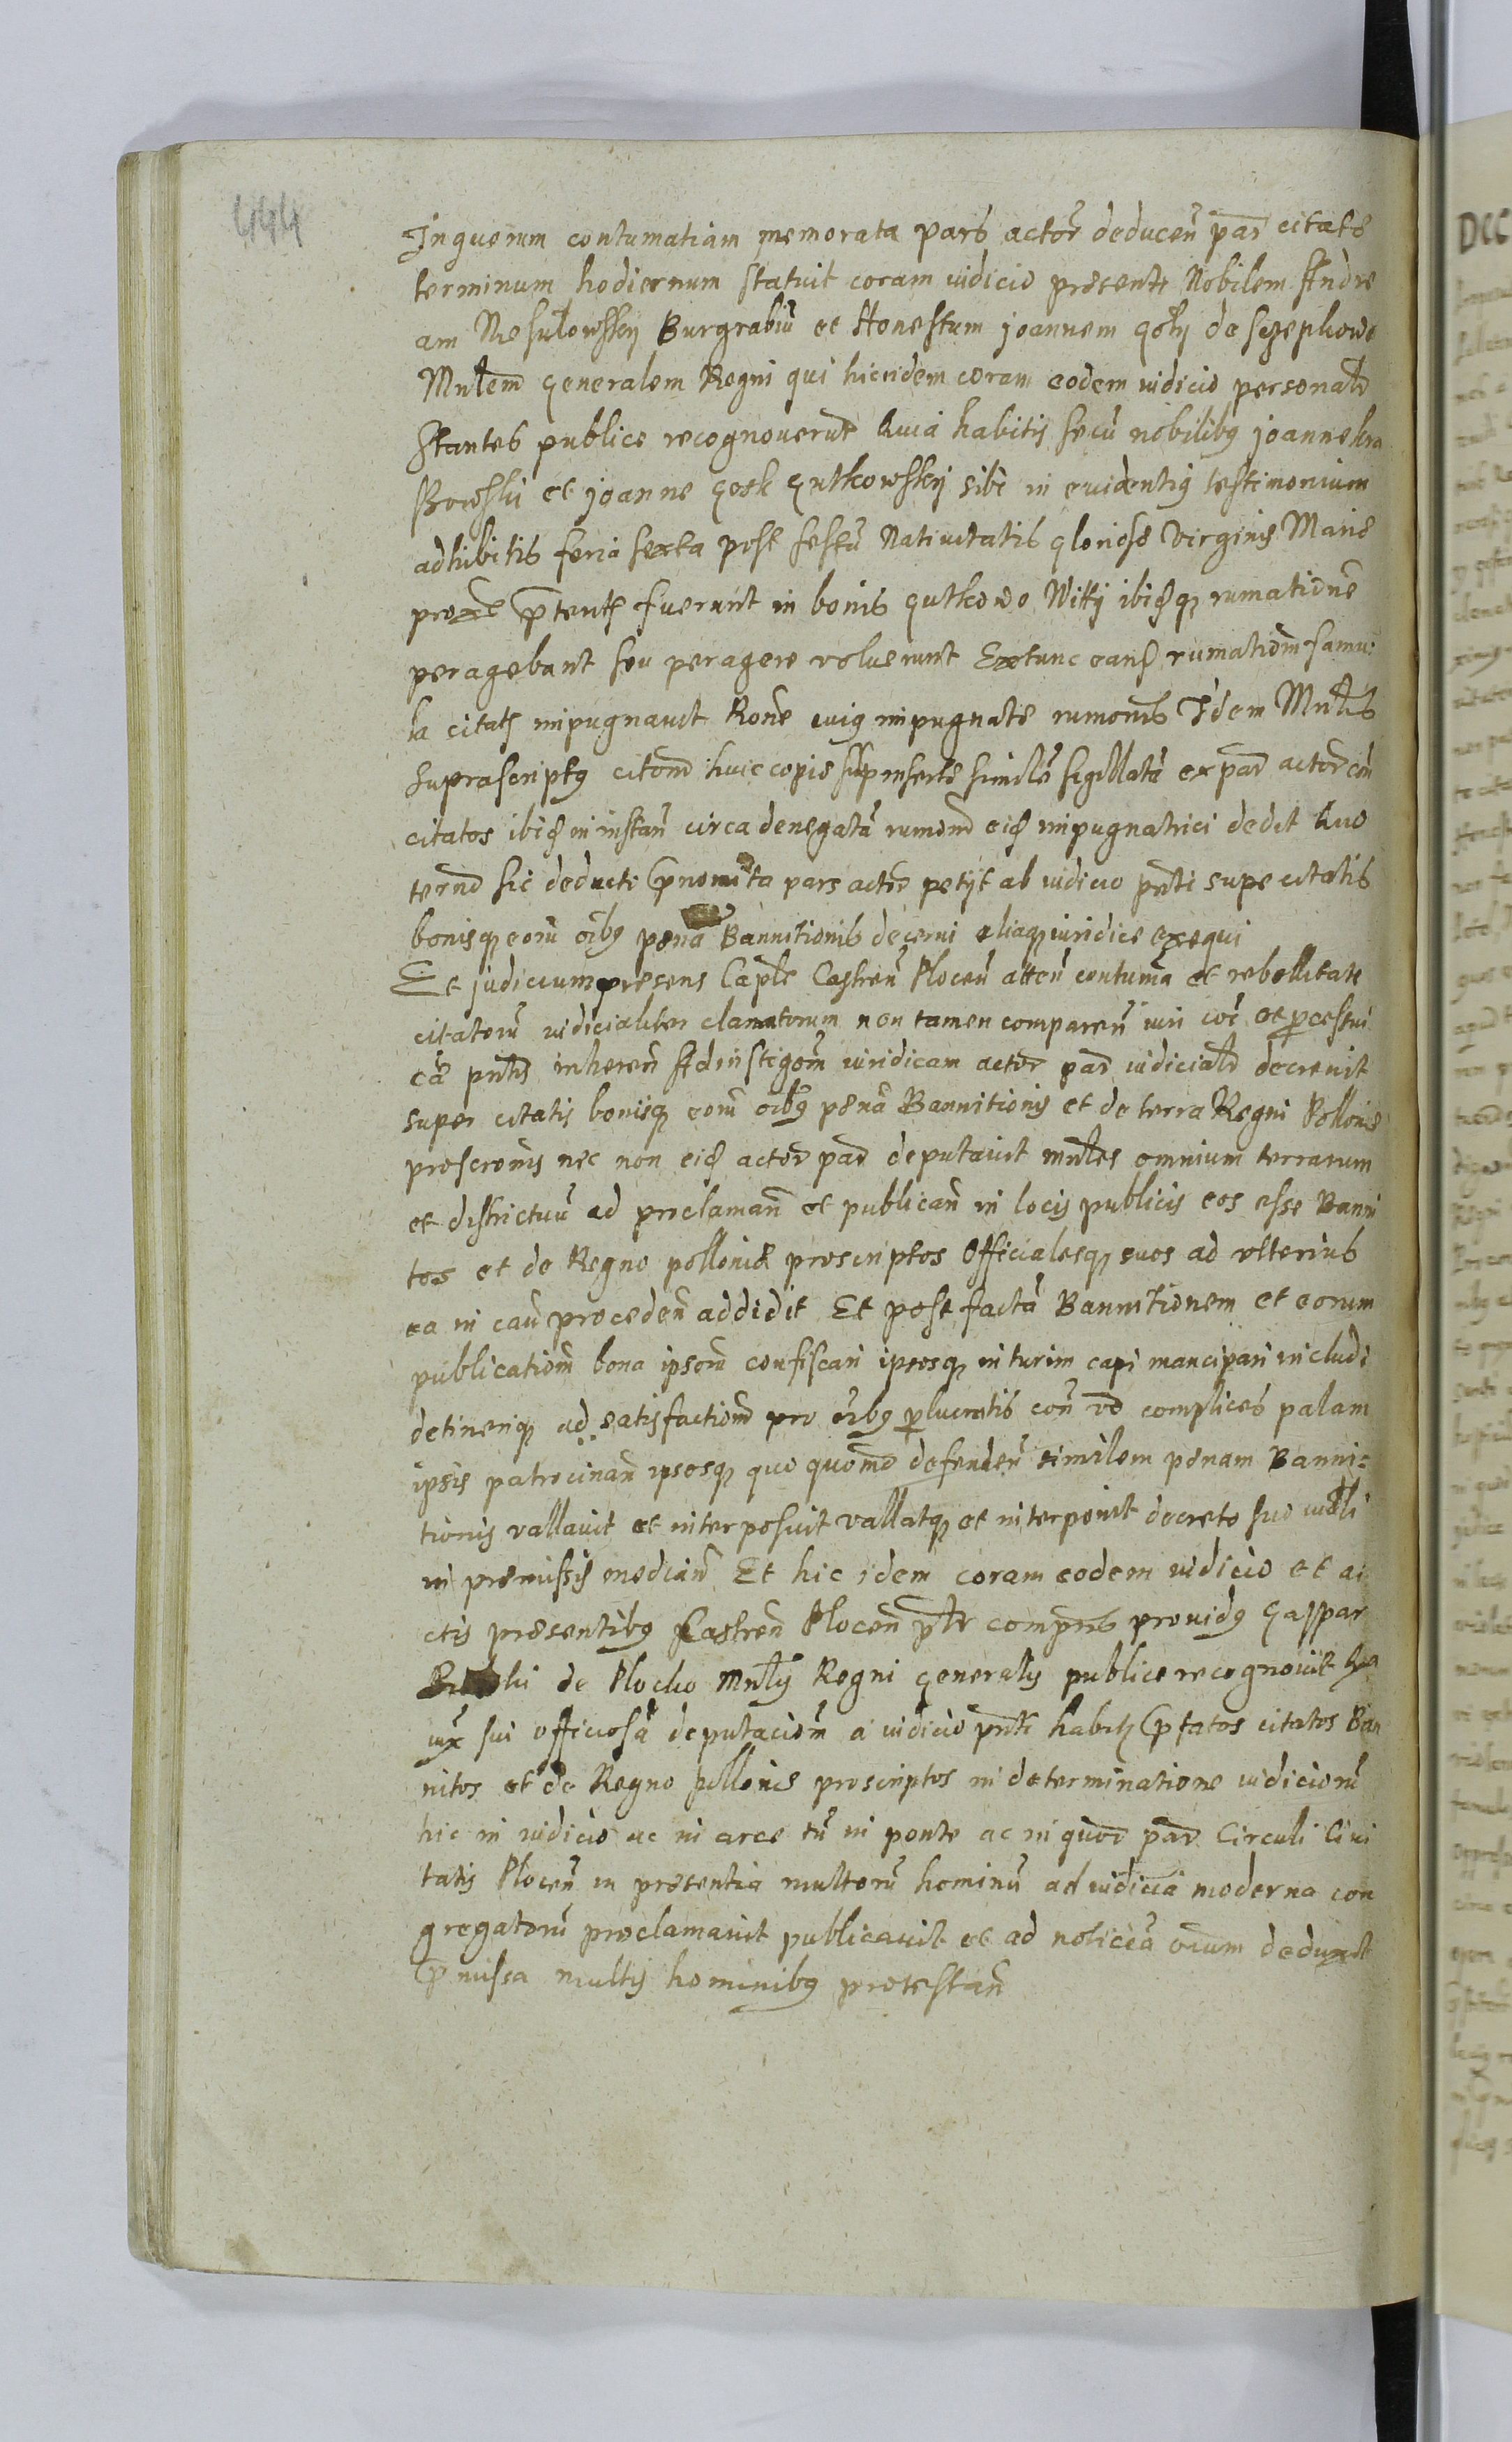 444
In quorum contumatiam memorata pars actor̃ deducen̄ par̃ citate
terminum hodiernum statuit coram iudicio presenti Nobilem Andre
am Mesulowskÿ Burgrabiū et Honestum joannem de Szephowo
Mnl̃em generalem Regni qui hic iidem coram eodem iudicio personalr̃
stantes publice recognoverunt Quia habitis secū nobilibꝫ joanne kra
Bowski et joanne gosk gutkowskÿ sibi in evidentiꝫ testimonium
adhibitis feria sexta post festū Nativitatis gloriose Virginis Marie
proxe pterite fuerunt in bonis gutkowo Witkÿ ibidꝫ rumatione
peragebant seu peragere voluerunt Extunc eand rumatiom̃ famu:
la citate impugnavit Rone cuiꝫ impugnate rumonis Idem Mnl̃is
suprascriptꝫ citom̃ huic copie suprinserte similē sigillatā ex par̃ actor̃ con̄
citatos ibid in instan̄ circa denegatā rumom̃ eid impugnatrici dedit Quo
termo sic deducto pnomita pars actor̃ petÿt ab iudicio pnti supe citatis
bonisqꝫ eorū oibꝫ pena Bannitionis decerni aliaqꝫ iuridice exequi
Et judicium presens Caplē Castren̄ Plocen̄ atten̄ contuma et rebellitate
citatorū iudicialiter clamatorum non tamen comparen̄ iuri coi et pcessui
cā pntis inheren̄ Ad instigom̃ iuridicam actor̃ par̃ iudicialr̃ decrevit
super citatis bonisqꝫ eorū oibꝫ penā Bannitionis et de terra Regni Pollonie
proscronis nec non eid actor̃ par̃ deputavit mnl̃es omnium terrarum
et districtuū ad proclaman̄ et publican̄ in locis publicis eos esse Banni
tos et de Regno pollonie proscriptos Officialesqꝫ suos ad ulterius
ea in cau proceden̄ addidit Et post factā Bannitionem et eorum
publicatiom̃ bona ipsorū confiscari ipsosqꝫ in turim capi mancipari includi
detineriqꝫ ad satisfactiom̃ pro oibꝫ plucratis con̄ vo complices palam
ipsis patrocinan̄ ipsosqꝫ quo quomo defenden̄ similem penam Banni=
tionis vallavit et interposuit vallatqꝫ et interponit decreto suo iudli
in premissis median̄ Et hic idem coram eodem iudicio et a
ctis presentibꝫ Castren̄ Plocen̄ plr̃ comprns providꝫ gaspar
de Plocko Mnl̃is Regni generalis publice recognovit Quia
iux sui officiosā deputaciom̃ a iudicio pnti habitā pfatos citatos Ban
nitos et de Regno pollonie proscriptos in determinatione iudiciorū
hic in iudicio ac in arce tū in ponte ac in quor̃ par̃ Circuli Civi
tatis Plocen̄ in presentia multorū hominū ad iudicia moderna con
gregatorū proclamavit publicavit et ad noticiā oium deduxit
pmissa multis hominibꝫ protestan̄